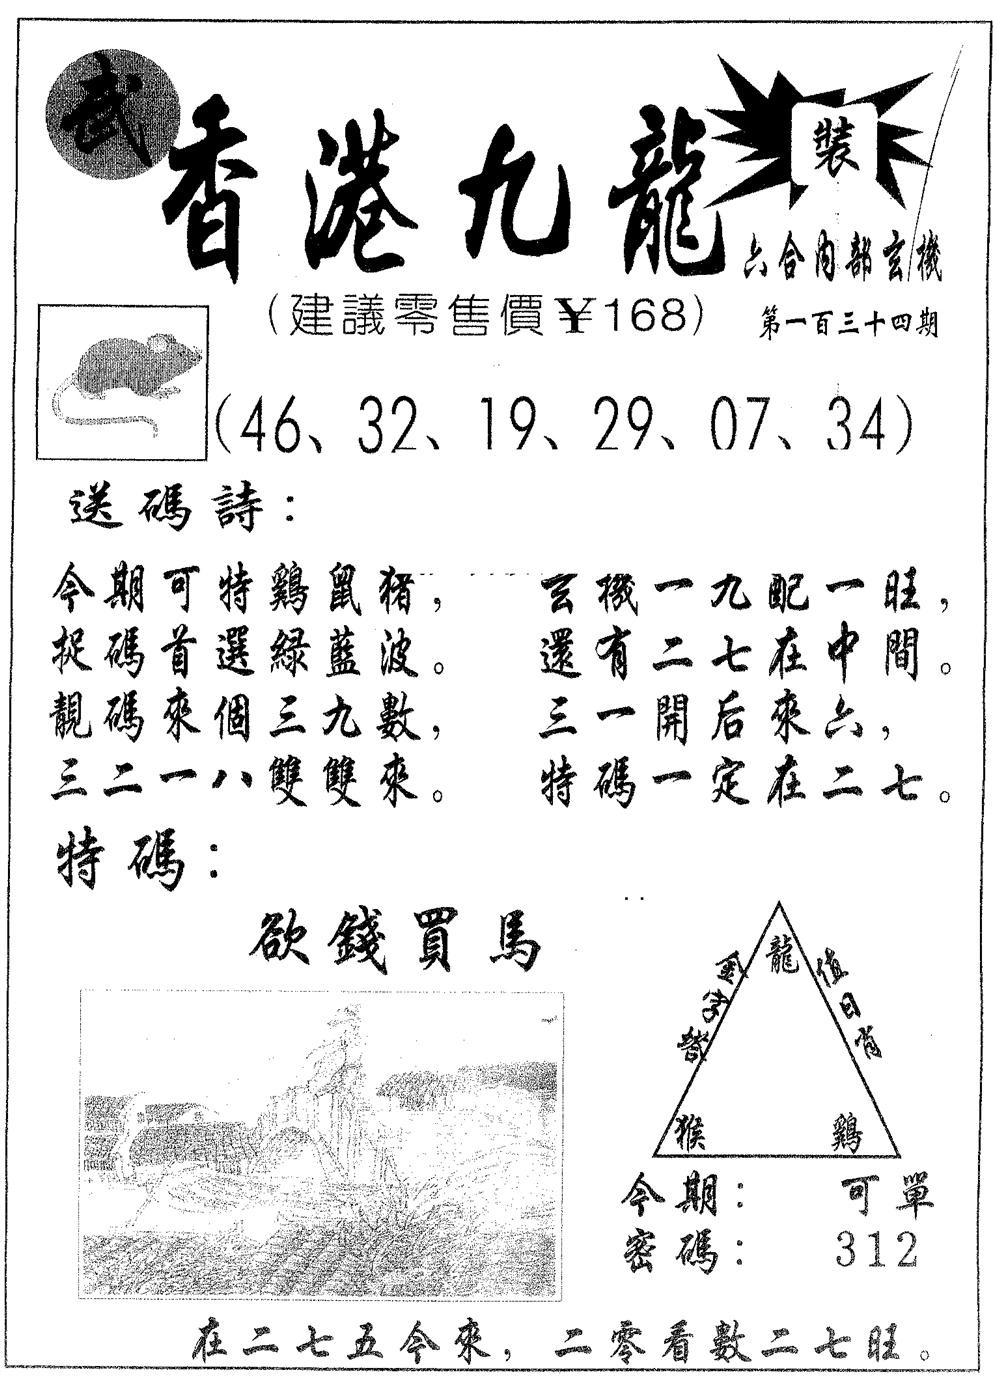 武
香港九龍
裝
六合内部玄機
(建議零售價¥168)
第一百三十四期
(46、32、19、29、07、34)
送碼詩：
今期可特鷄鼠猪，
捉碼首選綠藍波。
靚碼來個三九數，
三二一八雙雙來。
玄機一九配一旺，
還有二七在中間。
三一開后來六，
特碼一定在二七。
特碼：
欲錢買馬
龍
金字
值日肖
猴
鷄
今期：可單
密碼：312
在二七五今來，二零看數二七旺。